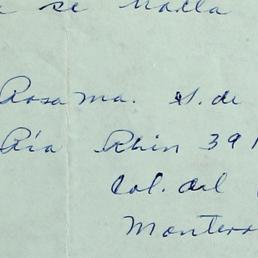 se Halla
Rosa Ma. G. de
Río Rhin 391
Col. del
Monterr